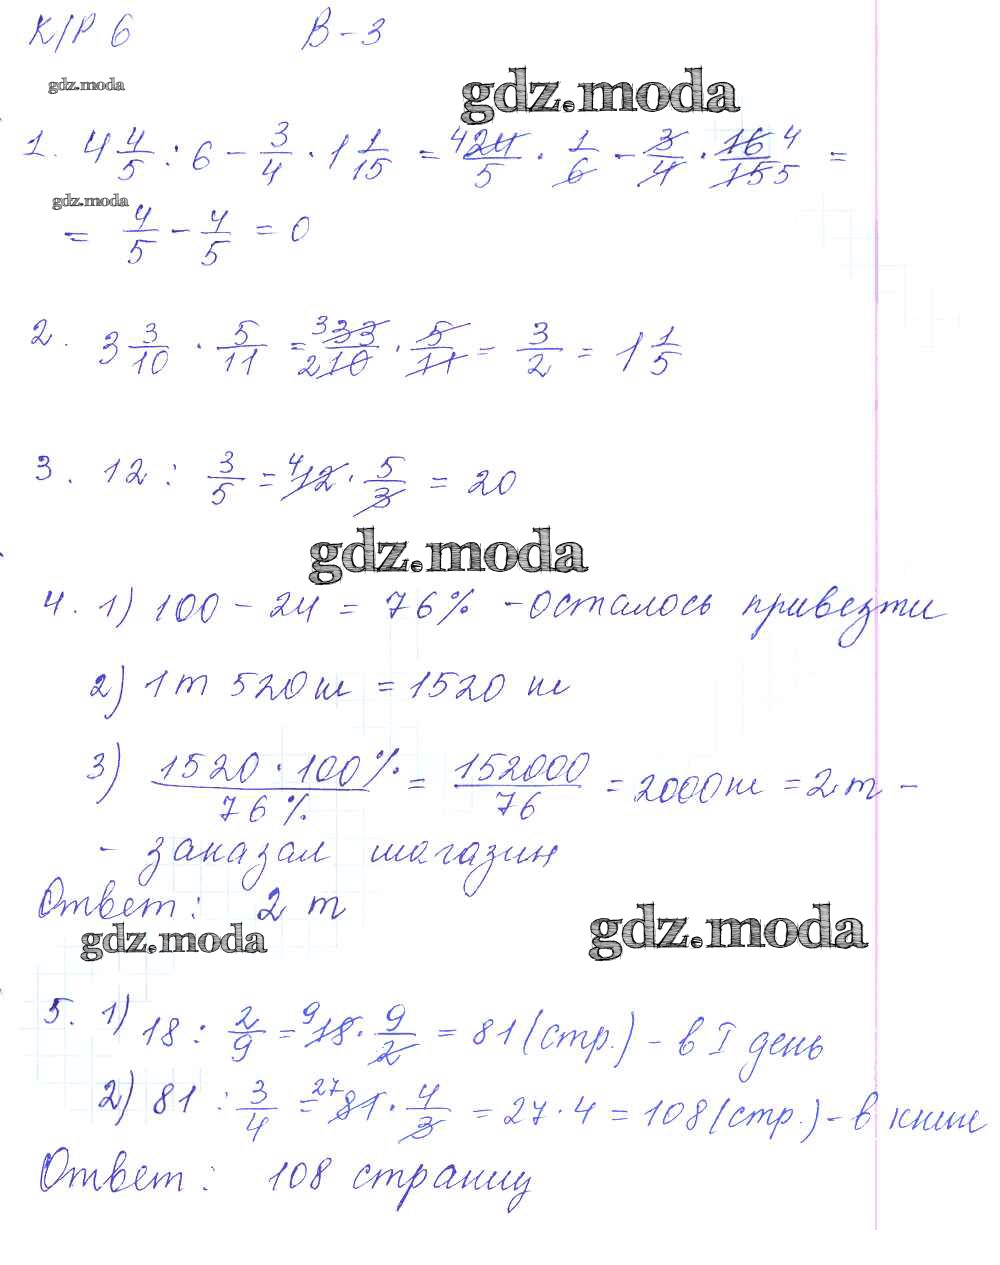 К/Р 6 В-3
gdz.moda gdz.moda
1. 4 4/5 : 6 - 3/4 · 1 1/15 = 4 24/5 · 1/6 - 3/4 · 16 4/15 5 =
gdz.moda
= 4/5 - 4/5 = 0
2. 3 3/10 · 5/11 = 3 33/2 10 · 5/11 = 3/2 = 1 1/5
3. 12 : 3/5 = 4 12 · 5/3 = 20
gdz.moda
4. 1) 100 - 24 = 76% - осталось привезти
2) 1т 520кг = 1520 кг
3) 1520 · 100%/76% = 152000/76 = 2000кг = 2т -
- заказал магазин
Ответ: 2 т
gdz.moda gdz.moda
5. 1) 18 : 2/9 = 9 18 · 9/2 = 81 (стр.) - в I день
2) 81 : 3/4 = 27 81 · 4/3 = 27 · 4 = 108 (стр.) - в книге
Ответ: 108 страниц